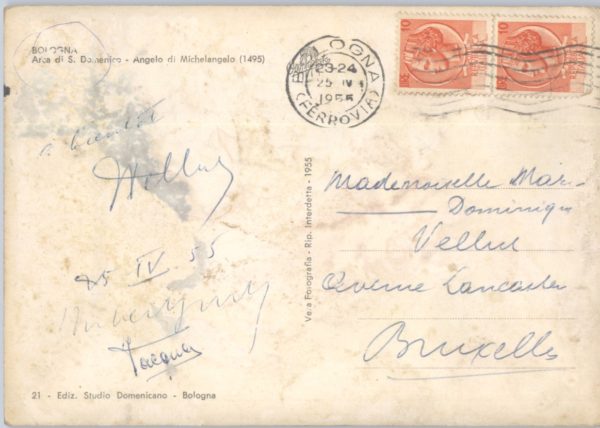 BOLOGNA
Arca di S. Domenico - Angelo di Michelangelo (1495)
BOLOGNA
23-24
25 IV
1955
(FERROVIA)
10
10
à bientôt
25 IV 55
Vera Fotografia - Rip. Interdetta - 1955
Mademoiselle Marie-
Dominique
Avenue Lancaster
Bruxelles
21 - Ediz. Studio Domenicano - Bologna